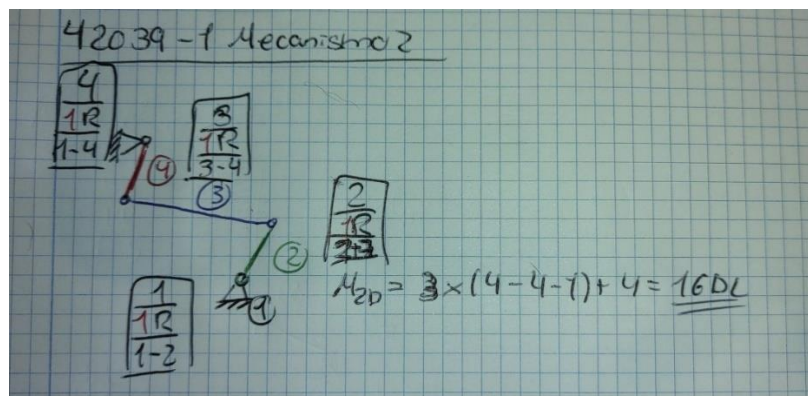 42039-1 Mecanismo 2
4
1R
1-4
3
1R
3-4
4
3
2
1R
2
1
1
1R
1-2
M2D = 3×(4-4-1)+4 = 1GDL